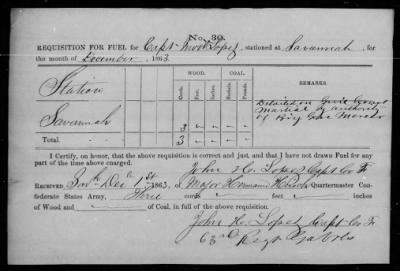 No. 39.
REQUISITION FOR FUEL for Capt Lopez, stationed at Savannah, for
the month of December, 1863.
WOOD. COAL.
Cords. Feet. Inches. Bushels. Pounds.
REMARKS
Station
Savannah 3 " " " "
Detailed on Court
Martial by authority
of Brig Gen Mercer
Total 3 " " " "
I Certify, on honor, that the above requisition is correct and just, and that I have not drawn Fuel for any
part of the time above charged.
John H. Lopez Capt Co F
RECEIVED Savh Dec 1st 1863, of Major Hermann Hirsch, Quartermaster Con-
federate States Army, Three cords " feet " inches
of Wood and " of Coal, in full of the above requisition.
John H. Lopez Capt Co F
63rd Regt Ga Vols